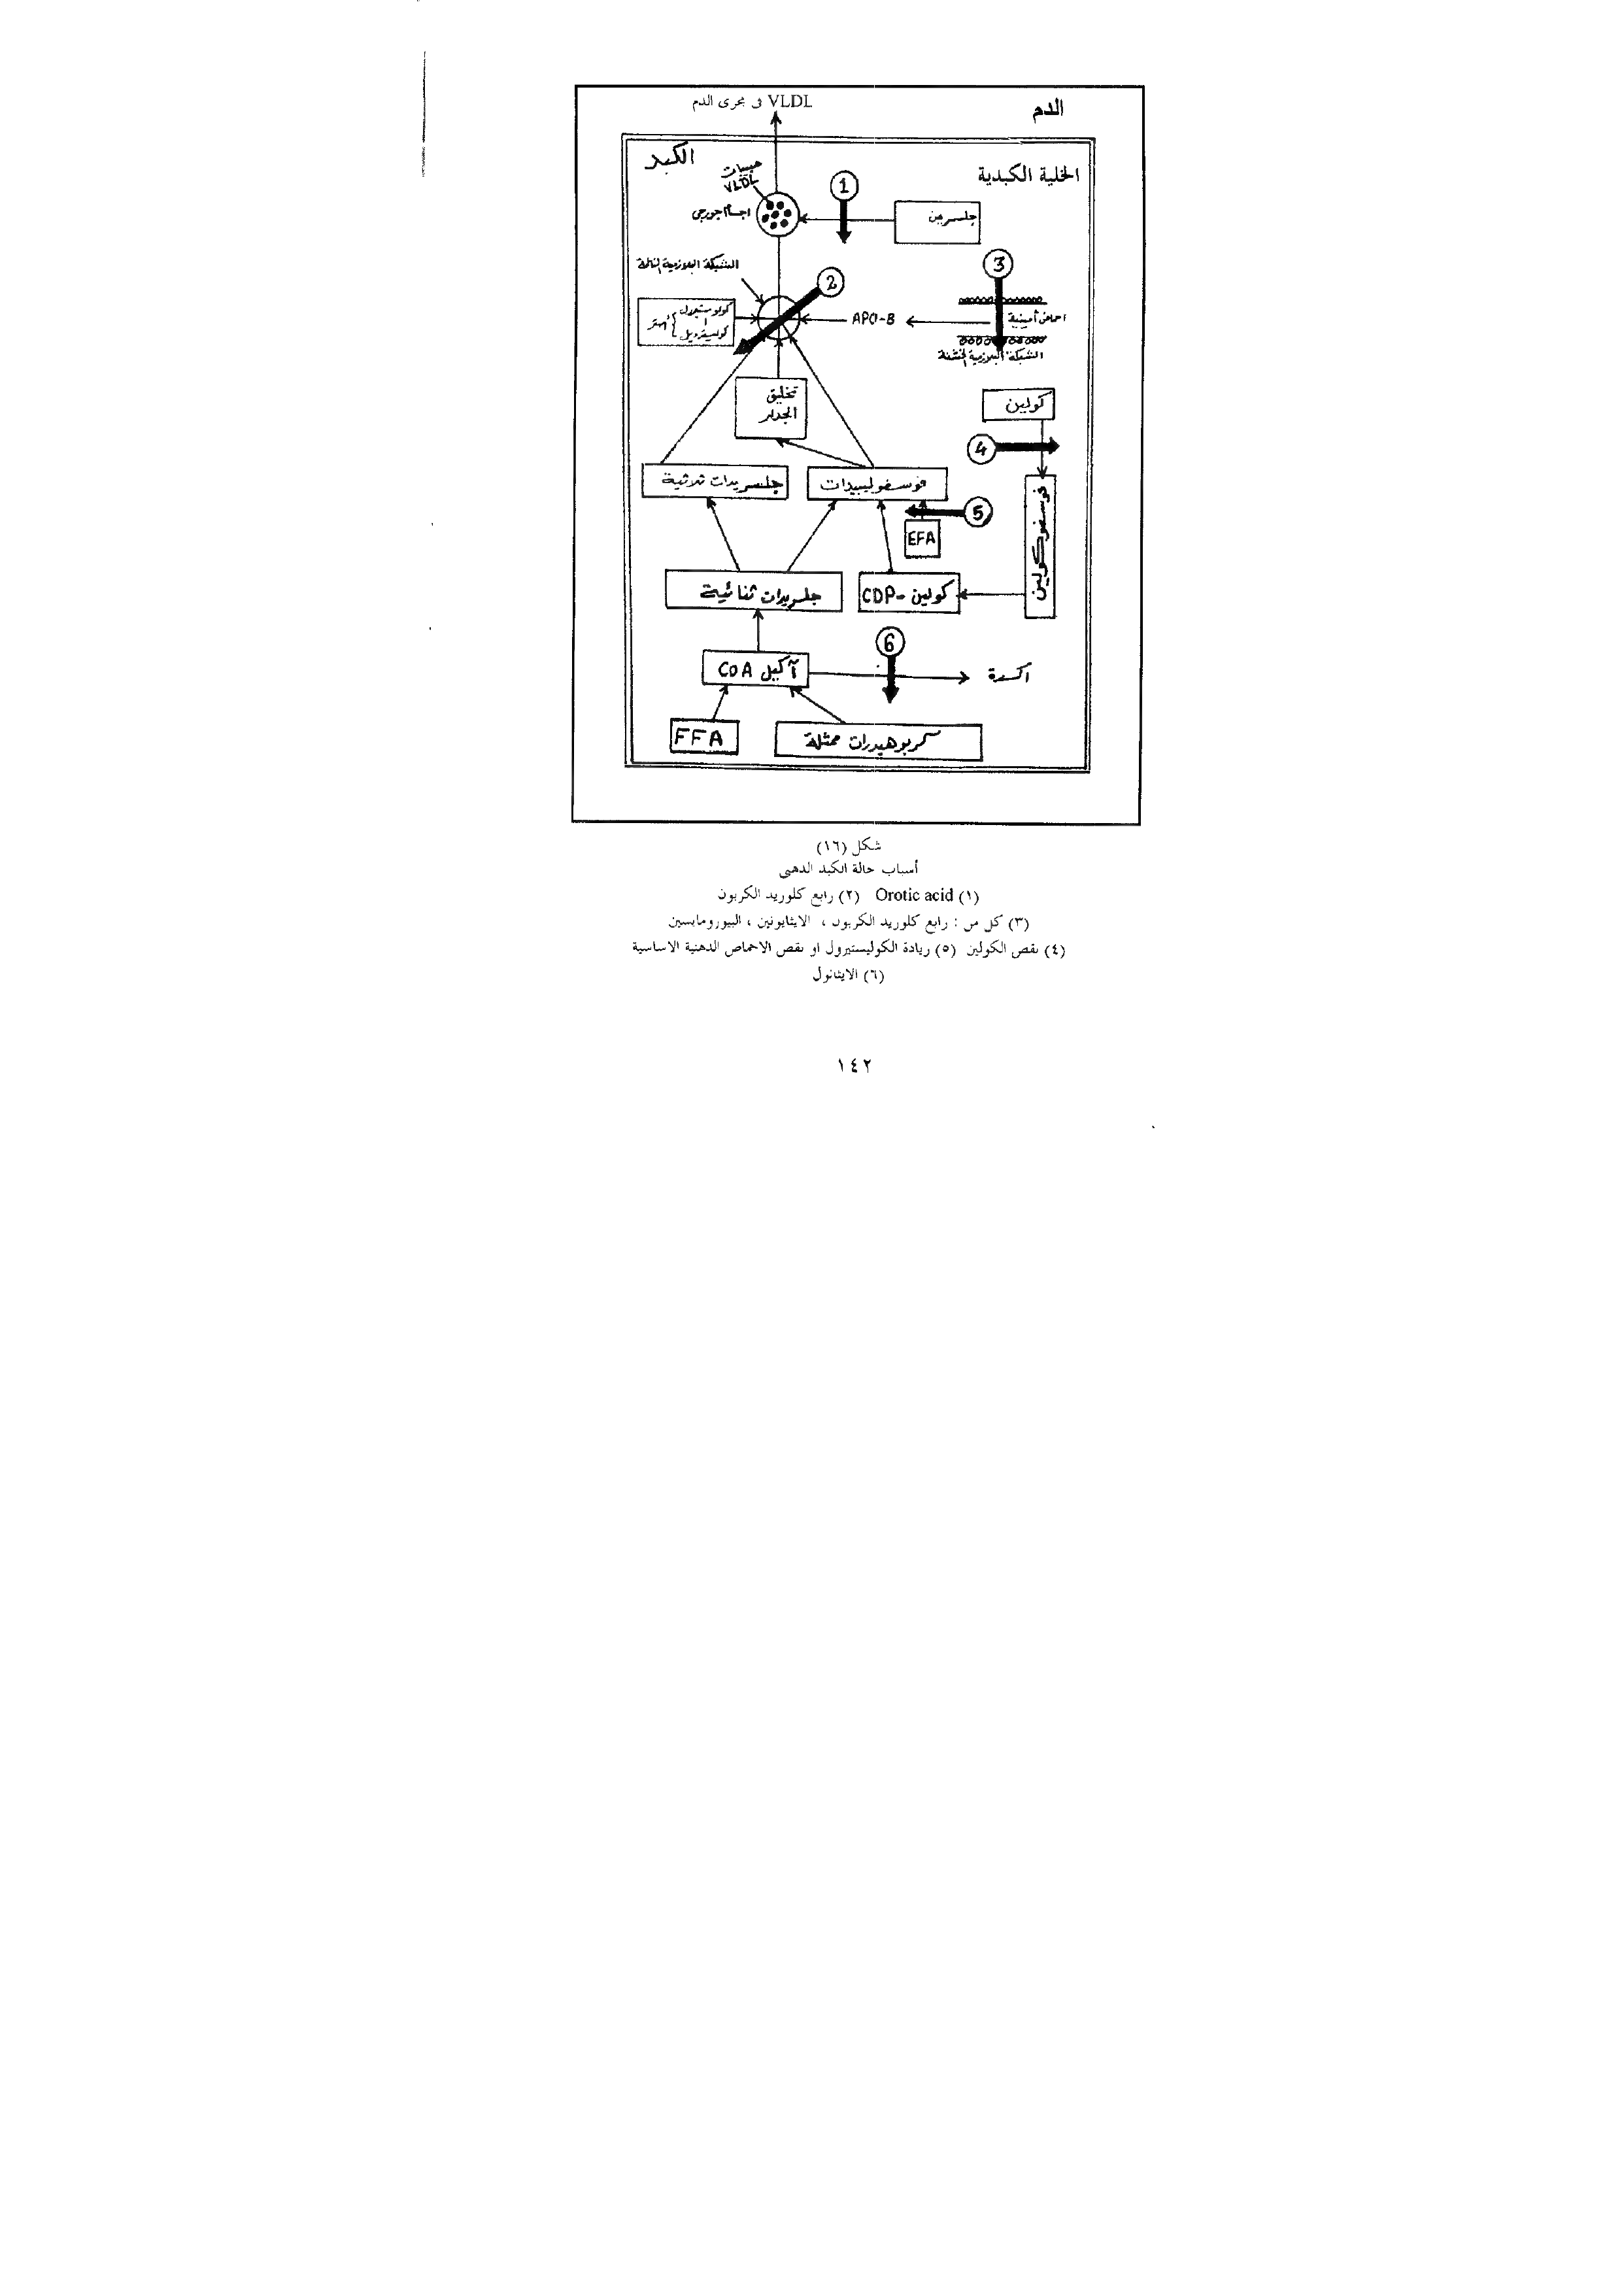 VLDL فى مجرى الدم
الدم
الكبد
الخلية الكبدية
VLDL
1
جلسرين
3
الشبكة البلازمية
2
كولوستيرول
APO-B
احماض أمينية
الشبكة البلازمية الخشنة
تخليق
الجدار
كولين
4
جلسريدات ثلاثية
فوسفوليبيدات
5
EFA
فوسفوكولين
جلسريدات ثنائية
كولين - CDP
6
آكيل COA
أكسدة
FFA
كربوهيدرات ممثلة
شكل (١٦)
أسباب حالة الكبد الدهنى
(١) Orotic acid (٢) رابع كلوريد الكربون
(٣) كل من : رابع كلوريد الكربون ، الايثايونين ، البيورومايسين
(٤) نقص الكولين (٥) زيادة الكوليستيرول او نقص الاحماض الدهنية الاساسية
(٦) الايثانول
١٤٢